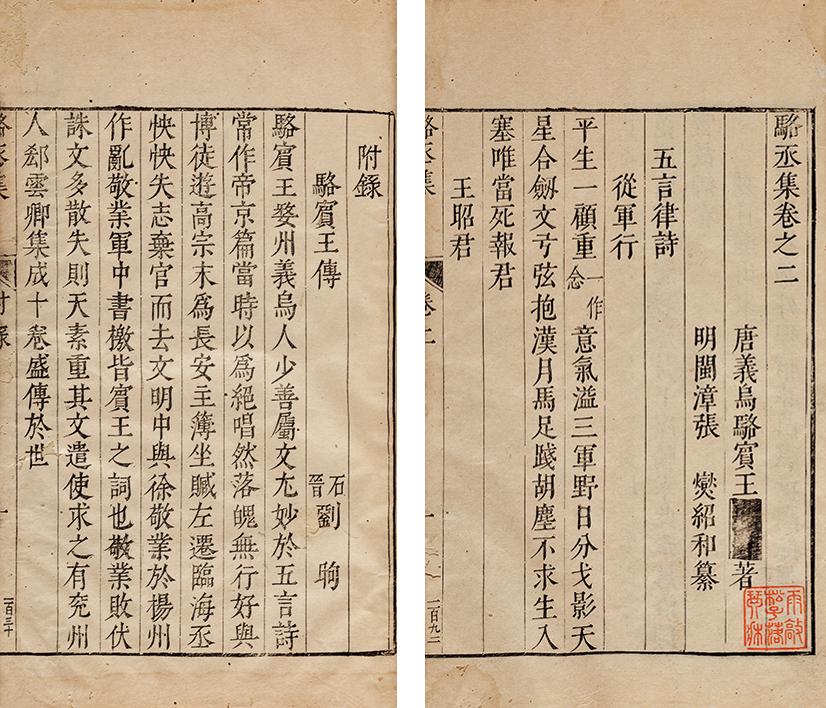 駱丞集卷之二
唐義烏駱賓王 著
明閩漳張 燮紹和纂
五言律詩
從軍行
平生一顧重一作念意氣溢三軍野日分戈影天
星合劒文弓弦抱漢月馬足踐胡塵不求生入
塞唯當死報君
王昭君
駱丞集
卷二
一
一百九二
附錄
駱賓王傳
石晉劉 昫
駱賓王婺州義烏人少善屬文尤妙於五言詩
常作帝京篇當時以為絕唱然落魄無行好與
博徒遊高宗末為長安主簿坐贓左遷臨海丞
怏怏失志棄官而去文明中與徐敬業於楊州
作亂敬業軍中書檄皆賓王之詞也敬業敗伏
誅文多散失則天素重其文遣使求之有兖州
人郄雲卿集成十卷盛傳於世
駱丞集
附錄
一
一百三十